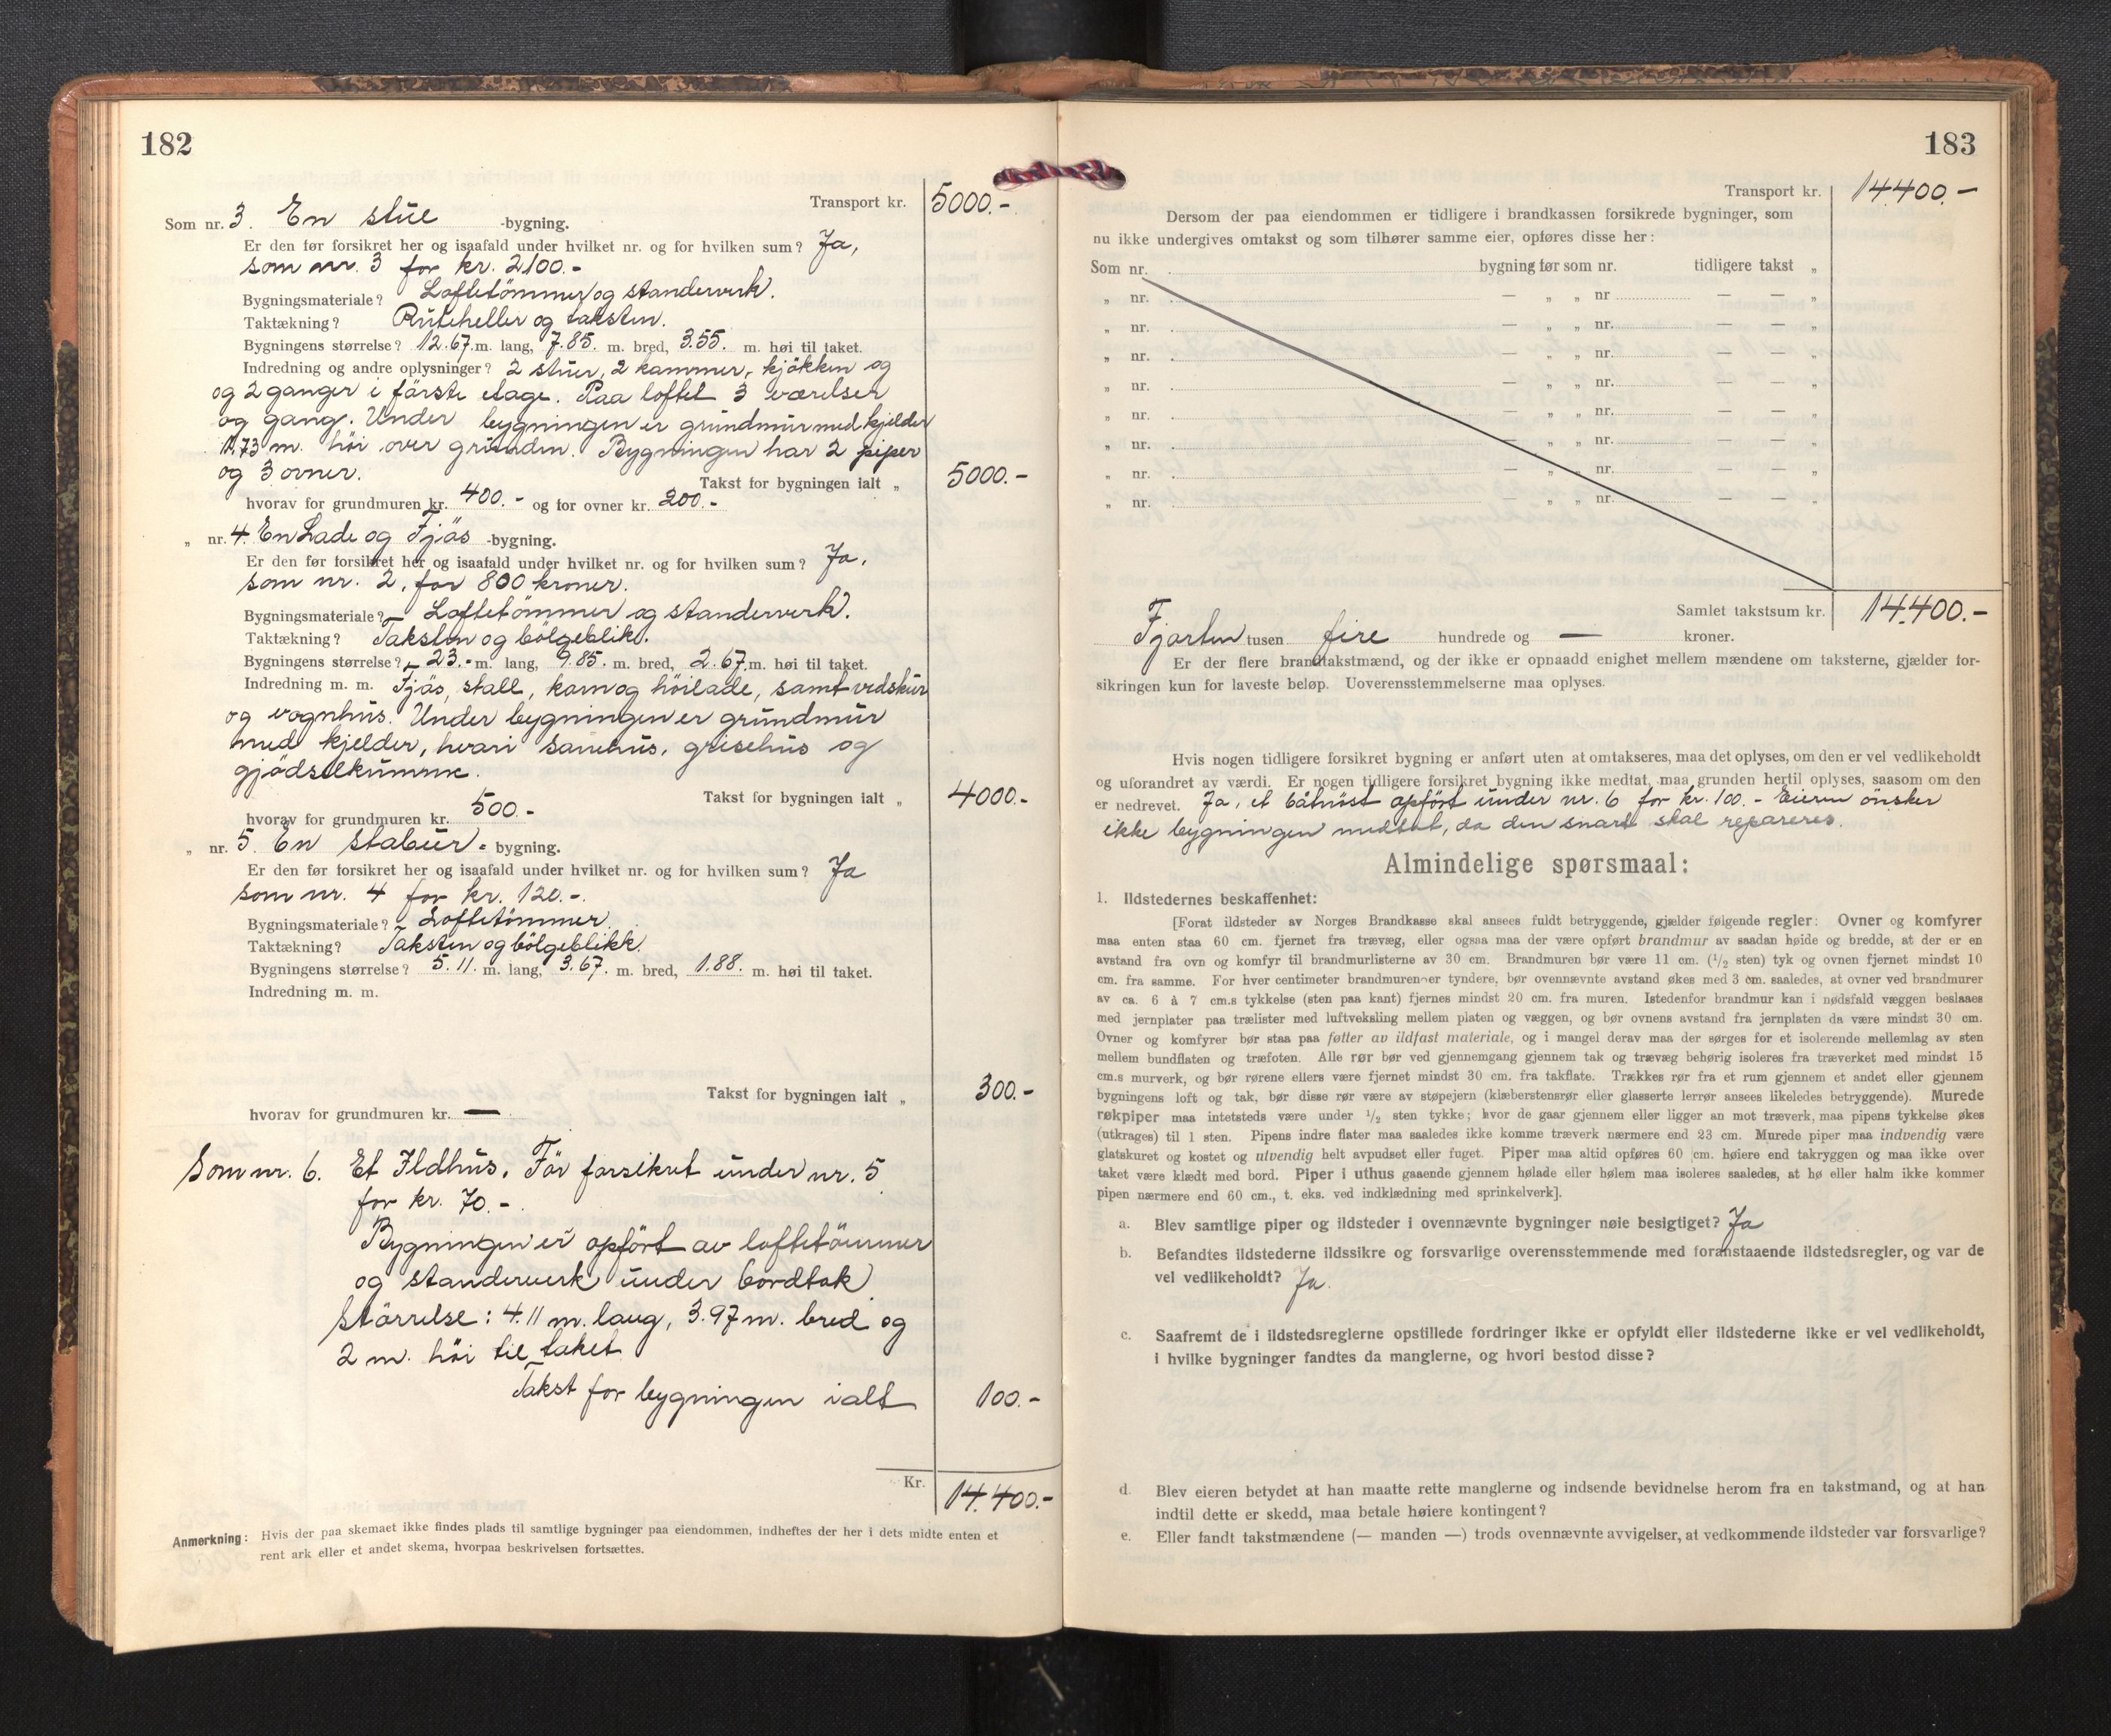 182
Transport kr. 5000.-
Som nr. 3. En stue -bygning.
Er den før forsikret her og isaafald under hvilket nr. og for hvilken sum? Ja,
som nr. 3 for kr. 2100.-
Bygningsmateriale? Loftetömmer og standerverk.
Taktækning? Ruteheller og taksten.
Bygningens størrelse? 12.67. m. lang, 7.85. m. bred, 3.55. m. høi til taket.
Indredning og andre oplysninger? 2 stuer, 2 kammer, kjökken og
og 2 ganger i förste etage. Paa loftet 3 værelser
og gang. Under bygningen er grundmur med kjelder
1,73 m. höi over grunden. Bygningen har 2 piper
og 3 ovner.
Takst for bygningen ialt „ 5000.-
hvorav for grundmuren kr. 400.- og for ovner kr. 200.-
„ nr. 4. En Lade og Fjös -bygning.
Er den før forsikret her og isaafald under hvilket nr. og for hvilken sum? Ja,
som nr. 2, for 800 kroner.
Bygningsmateriale? Loftetömmer og standerverk.
Taktækning? Taksten og bölgeblik.
Bygningens størrelse? 23.- m. lang, 9.85. m. bred, 2.67. m. høi til taket.
Indredning m. m. Fjös, stall, korn og höilade, samt vedskur
og vognhus. Under bygningen er grundmur
med kjelder, hvori sauehus, grisehus og
gjödselkumme.
Takst for bygningen ialt „ 4000.-
hvorav for grundmuren kr. 500.-
„ nr. 5. En stabur - bygning.
Er den før forsikret her og isaafald under hvilket nr. og for hvilken sum? Ja
som nr. 4 for kr. 120.-.
Bygningsmateriale? Loftetömmer.
Taktækning? Taksten og bölgeblikk.
Bygningens størrelse? 5.11. m. lang, 3.67. m. bred, 1.88. m. høi til taket.
Indredning m. m.
Takst for bygningen ialt „ 300.-
hvorav for grundmuren kr. —
Som nr. 6. Et Ildhus. För forsikret under nr. 5
for kr. 70.-.
Bygningen er opfört av loftetömmer
og standerverk under bordtak.
Störrelse: 4.11 m. lang, 3.97 m. bred og
2 m. höi til taket
Takst for bygningen ialt 100.-
Kr. 14.400.-
Anmerkning: Hvis der paa skemaet ikke findes plads til samtlige bygninger paa eiendommen, indheftes der her i dets midte enten et
rent ark eller et andet skema, hvorpaa beskrivelsen fortsættes.
183
Transport kr. 14.400.-
Dersom der paa eiendommen er tidligere i brandkassen forsikrede bygninger, som
nu ikke undergives omtakst og som tilhører samme eier, opføres disse her:
Som nr. bygning før som nr. tidligere takst „
„ nr. — „ „ nr — — „
„ nr. — „ „ nr. — — „
„ nr. — „ „ nr. — — „
„ nr. — „ „ nr. — — „
„ nr. — „ „ nr. — — „
„ nr. — „ „ nr. — — „
„ nr. — „ „ nr. — — „
„ nr. — „ „ nr. — — „
Samlet takstsum kr. 14.400.-
Fjorten tusen fire hundrede og — kroner.
Er der flere brandtakstmænd, og der ikke er opnaadd enighet mellem mændene om taksterne, gjælder for-
sikringen kun for laveste beløp. Uoverensstemmelserne maa oplyses.
Hvis nogen tidligere forsikret bygning er anført uten at omtakseres, maa det oplyses, om den er vel vedlikeholdt
og uforandret av værdi. Er nogen tidligere forsikret bygning ikke medtat, maa grunden hertil oplyses, saasom om den
er nedrevet. Ja, et båtnöst opfört under nr. 6 for kr. 100.- Eieren önsker
ikke bygningen medtat, da den snart skal repareres.
Almindelige spørsmaal:
1. Ildstedernes beskaffenhet:
[Forat ildsteder av Norges Brandkasse skal ansees fuldt betryggende, gjælder følgende regler: Ovner og komfyrer
maa enten staa 60 cm. fjernet fra trævæg, eller ogsaa maa der være opført brandmur av saadan høide og bredde, at der er en
avstand fra ovn og komfyr til brandmurlisterne av 30 cm. Brandmuren bør være 11 cm. (1/2 sten) tyk og ovnen fjernet mindst 10
cm. fra samme. For hver centimeter brandmuren er tyndere, bør ovennævnte avstand økes med 3 cm. saaledes, at ovner ved brandmurer
av ca. 6 à 7 cm.s tykkelse (sten paa kant) fjernes mindst 20 cm. fra muren. Istedenfor brandmur kan i nødsfald væggen beslaaes
med jernplater paa trælister med luftveksling mellem platen og væggen, og bør ovnens avstand fra jernplaten da være mindst 30 cm.
Ovner og komfyrer bør staa paa føtter av ildfast materiale, og i mangel derav maa der sørges for et isolerende mellemlag av sten
mellem bundflaten og træfoten. Alle rør bør ved gjennemgang gjennem tak og trævæg behørig isoleres fra træverket med mindst 15
cm.s murverk, og bør rørene ellers være fjernet mindst 30 cm. fra takflate. Trækkes rør fra et rum gjennem et andet eller gjennem
bygningens loft og tak, bør disse rør være av støpejern (klæberstensrør eller glasserte lerrør ansees likeledes betryggende). Murede
røkpiper maa intetsteds være under 1/2 sten tykke; hvor de gaar gjennem eller ligger an mot træverk, maa pipens tykkelse økes
(utkrages) til 1 sten. Pipens indre flater maa saaledes ikke komme træverk nærmere end 23 cm. Murede piper maa indvendig være
glatskuret og kostet og utvendig helt avpudset eller fuget. Piper maa altid opføres 60 cm. høiere end takryggen og maa ikke over
taket være klædt med bord. Piper i uthus gaaende gjennem hølade eller hølem maa isoleres saaledes, at hø eller halm ikke kommer
pipen nærmere end 60 cm., t. eks. ved indklædning med sprinkelverk].
a. Blev samtlige piper og ildsteder i ovennævnte bygninger nøie besigtiget? Ja
b. Befandtes ildstederne ildssikre og forsvarlige overensstemmende med foranstaaende ildstedsregler, og var de
vel vedlikeholdt? Ja.
c. Saafremt de i ildstedsreglerne opstillede fordringer ikke er opfyldt eller ildstederne ikke er vel vedlikeholdt,
i hvilke bygninger fandtes da manglerne, og hvori bestod disse?
d. Blev eieren betydet at han maatte rette manglerne og indsende bevidnelse herom fra en takstmand, og at han
indtil dette er skedd, maa betale høiere kontingent?
e. Eller fandt takstmændene (— manden —) trods ovennævnte avvigelser, at vedkommende ildsteder var forsvarlige?